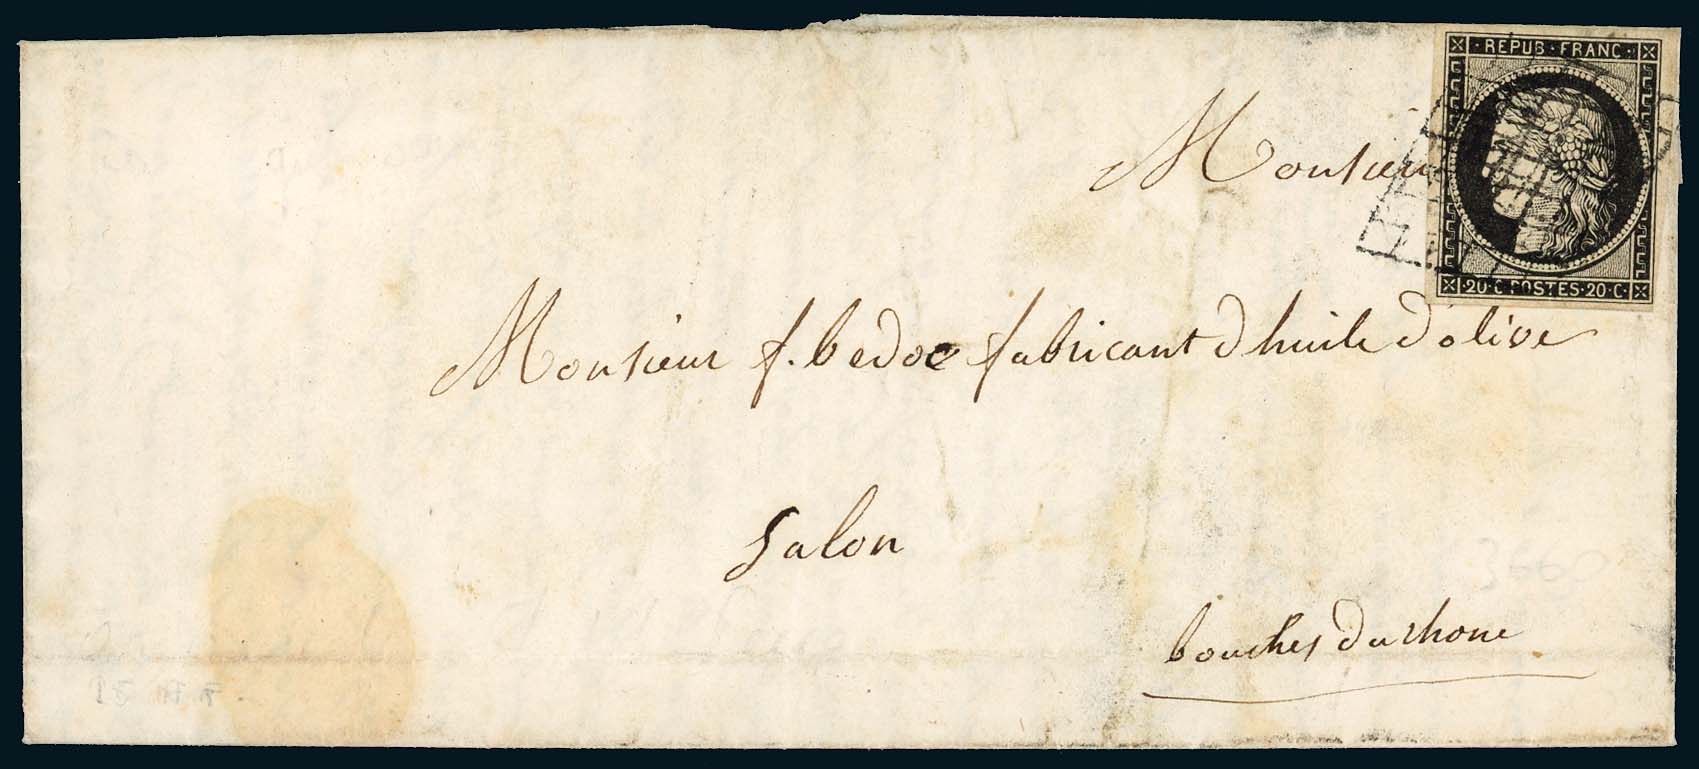 REPUB · FRANC ·
Monsieur
· 20 · C · POSTES · 20 · C ·
Monsieur f. bedoc fabricant d'huile d'olive
Salon
bouches du rhone